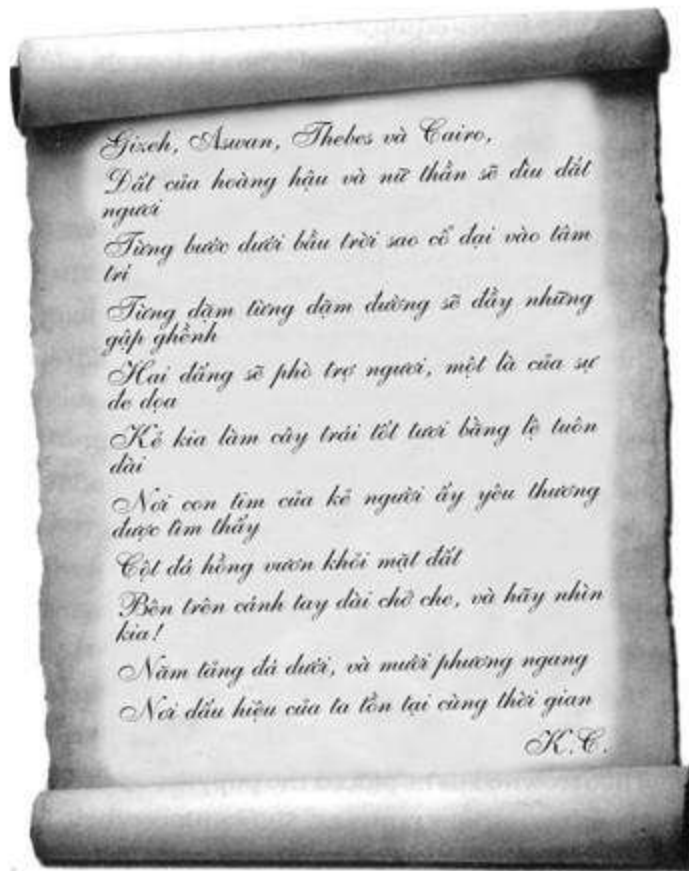 Gizeh, Aswan, Thebes và Cairo,
Đất của hoàng hậu và nữ thần sẽ dìu dắt
ngươi
Từng bước dưới bầu trời sao cổ đại vào tâm
trí
Từng dặm từng dặm đường sẽ đầy những
gập ghềnh
Hai đấng sẽ phò trợ ngươi, một là của sự
đe dọa
Kẻ kia làm cây trái tốt tươi bằng lệ tuôn
dài
Nơi con tim của kẻ người ấy yêu thương
được tìm thấy
Cột đá hồng vươn khỏi mặt đất
Bên trên cánh tay dài chở che, và hãy nhìn
kia!
Năm tảng đá dưới, và mười phương ngang
Nơi dấu hiệu của ta tồn tại cùng thời gian
K.C.